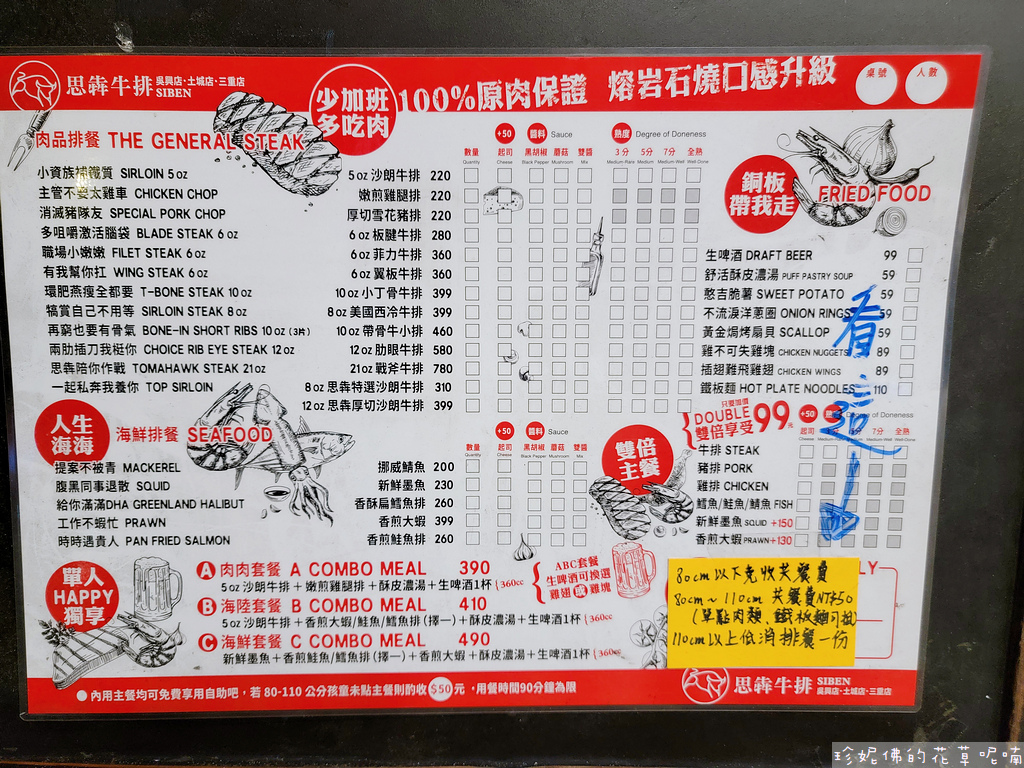 思犇牛排 SIBEN 吳興店·土城店·三重店
少加班
多吃肉
100%原肉保證 熔岩石燒口感升級
桌號 人數
肉品排餐 THE GENERAL STEAK
+50 醬料 Sauce 熟度 Degree of Doneness
數量 起司 黑胡椒 蘑菇 雙醬 3分 5分 7分 全熟
Quantity Cheese Black Pepper Mushroom Mix Medium-Rare Medium Medium-Well Well-Done
小資族補鐵質 SIRLOIN 5 oz 5 oz 沙朗牛排 220
主管不要太雞車 CHICKEN CHOP 嫩煎雞腿排 220
消滅豬隊友 SPECIAL PORK CHOP 厚切雪花豬排 220
多咀嚼激活腦袋 BLADE STEAK 6 oz 6 oz 板腱牛排 280
職場小嫩嫩 FILET STEAK 6 oz 6 oz 菲力牛排 360
有我幫你扛 WING STEAK 6 oz 6 oz 翼板牛排 360
環肥燕瘦全都要 T-BONE STEAK 10 oz 10 oz 小丁骨牛排 399
犒賞自己不用等 SIRLOIN STEAK 8 oz 8 oz 美國西冷牛排 399
再窮也要有骨氣 BONE-IN SHORT RIBS 10 oz (3片) 10 oz 帶骨牛小排 460
兩肋插刀我挺你 CHOICE RIB EYE STEAK 12 oz 12 oz 肋眼牛排 580
思犇陪你作戰 TOMAHAWK STEAK 21 oz 21 oz 戰斧牛排 780
一起私奔我養你 TOP SIRLOIN 8 oz 思犇特選沙朗牛排 310
12 oz 思犇厚切沙朗牛排 399
銅板
帶我走
FRIED FOOD
生啤酒 DRAFT BEER 99
舒活酥皮濃湯 PUFF PASTRY SOUP 59
憨吉脆薯 SWEET POTATO 59
不流淚洋蔥圈 ONION RINGS 59
黃金焗烤扇貝 SCALLOP 59
雞不可失雞塊 CHICKEN NUGGETS 89
插翅難飛雞翅 CHICKEN WINGS 89
鐵板麵 HOT PLATE NOODLES 110
看這
人生
海海
海鮮排餐 SEAFOOD
+50 醬料 Sauce
數量 起司 黑胡椒 蘑菇 雙醬
Quantity Cheese Black Pepper Mushroom Mix
提案不被青 MACKEREL 挪威鯖魚 200
腹黑同事退散 SQUID 新鮮墨魚 230
給你滿滿DHA GREENLAND HALIBUT 香酥扁鱈魚排 260
工作不蝦忙 PRAWN 香煎大蝦 399
時時遇貴人 PAN FRIED SALMON 香煎鮭魚排 260
雙倍
主餐
只要加價
DOUBLE
雙倍享受 99元
+50 Degree of Doneness
起司 7分 全熟
Cheese Medium-Well Well-Done
牛排 STEAK
豬排 PORK
雞排 CHICKEN
鱈魚/鮭魚/鯖魚 FISH
新鮮墨魚 SQUID +150
香煎大蝦 PRAWN +130
單人
HAPPY
獨享
A 肉肉套餐 A COMBO MEAL 390
5 oz 沙朗牛排 + 嫩煎雞腿排 + 酥皮濃湯 + 生啤酒1杯 (360cc
B 海陸套餐 B COMBO MEAL 410
5 oz 沙朗牛排 + 香煎大蝦/鮭魚/鱈魚排 (擇一) + 酥皮濃湯 + 生啤酒1杯 (360cc
C 海鮮套餐 C COMBO MEAL 490
新鮮墨魚 + 香煎鮭魚/鱈魚排 (擇一) + 香煎大蝦 + 酥皮濃湯 + 生啤酒1杯 (360cc
ABC套餐
生啤酒可換選
雞翅 或 雞塊
LY
80cm以下免收共餐費
80cm~110cm 共餐費NT$50
(單點肉類、鐵板麵可抵)
110cm以上低消排餐一份
內用主餐均可免費享用自助吧，若 80-110 公分孩童未點主餐則酌收 $50 元 ，用餐時間90分鐘為限
思犇牛排 SIBEN 吳興店·土城店·三重店
珍妮佛的花草呢喃